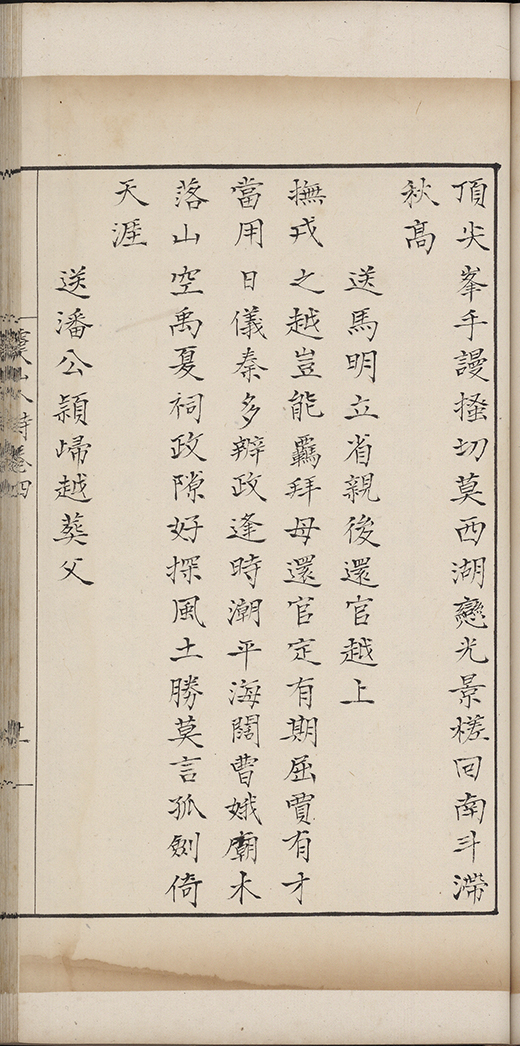 頂尖峯手謾搔切莫西湖戀光景槎回南斗滯
秋高
送馬明立省親後還官越上
撫戎之越豈能羈拜母還官定有期屈賈有才
當用日儀秦多辨政逢時潮平海闊曹娥廟木
落山空禹夏祠政隙好探風土勝莫言孤劍倚
天涯
送潘公穎歸越葬父
山人詩卷四